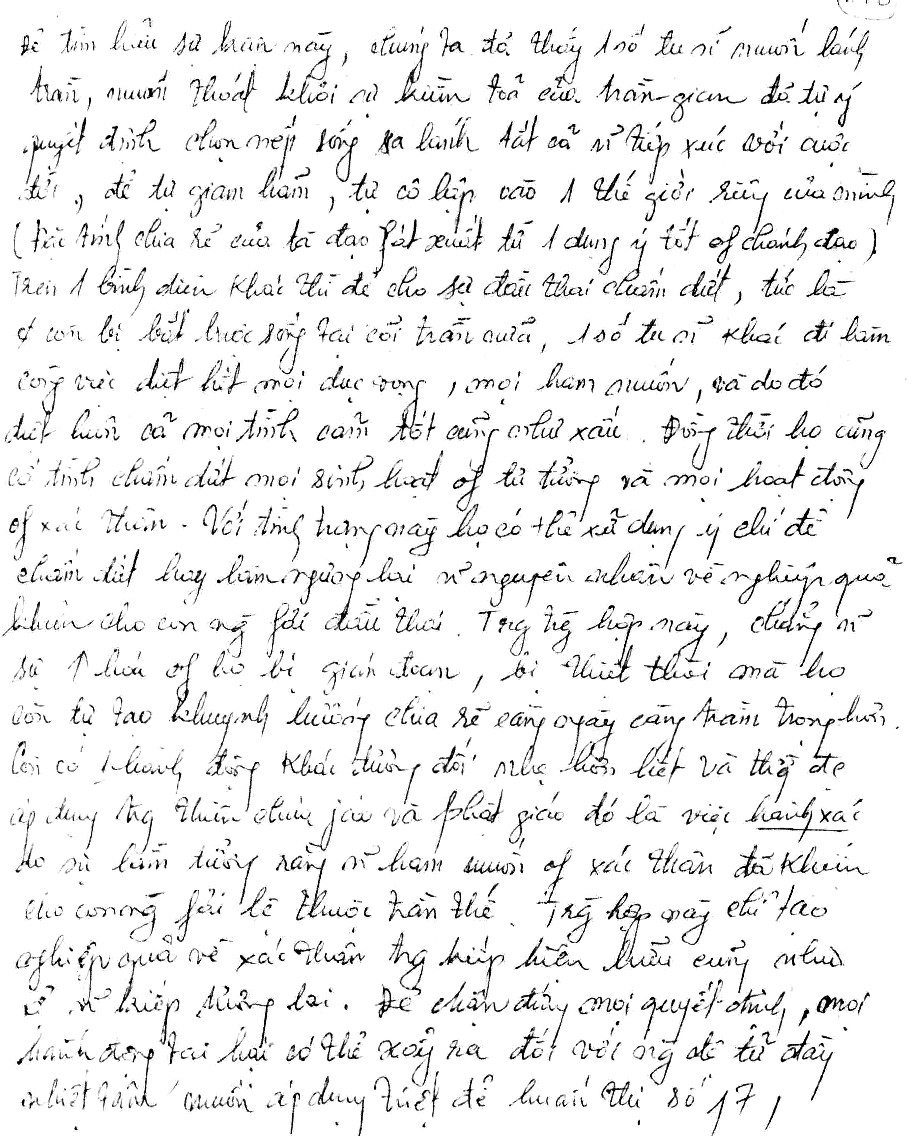 Để tìm hiểu sự kiện này, chúng ta đã thấy 1 số tu sĩ muốn lánh
trần, muốn thoát khỏi sự kiềm toả của trần-gian đã tự ý
quyết định chọn nếp sống xa lánh tất cả ~ tiếp xúc với cuộc
đời, để tự giam hãm, tự cô lập vào 1 thế giới riêng của mình
(đặc tính chia rẽ của tà đạo fát xuất từ 1 dụng ý tốt of chánh đạo).
Trên 1 bình diện khác thì để cho sự đầu thai chấm dứt, tức là
ko còn bị bắt buộc sống tại cõi trần nữa, 1 số tu sĩ khác đi làm
công việc diệt hết mọi dục vọng, mọi ham muốn, và do đó
diệt luôn cả mọi tình cảm tốt cũng như xấu. Đồng thời họ cũng
cố tình chấm dứt mọi sinh hoạt of tư tưởng và mọi hoạt động
of xác thân. Với tình trạng này họ có thể xử dụng ý chí để
chấm dứt hay làm ngưng lại ~ nguyên nhân về nghiệp quả
khiến cho con ng̀ fải đầu thai. Trg tr̀g hợp này, chẳng ~
sự ↑ hóa of họ bị gián đoạn, bị thiệt thòi mà họ
còn tự tạo khuynh hướng chia rẽ càng ngày càng trầm trọng hơn.
Còn có 1 hành động khác tương đối nhẹ hơn hết và thg̀ đc
áp dụng trg thiên chúa jáo và fhật giáo đó là việc hành xác
do sự lầm tưởng rằng ~ ham muốn of xác thân đã khiến
cho con ng̀ fải lệ thuộc trần thế. Tr̀g hợp này chỉ tạo
nghiệp quả về xác thân trg kiếp hiện hữu cũng như
ở ~ kiếp tương lai. Để chận đứng mọi quyết định, mọi
hành động tai hại có thể xảy ra đối với ng̀ đệ tử đầy
nhiệt tâm muốn áp dụng triệt để huấn thị số 17,